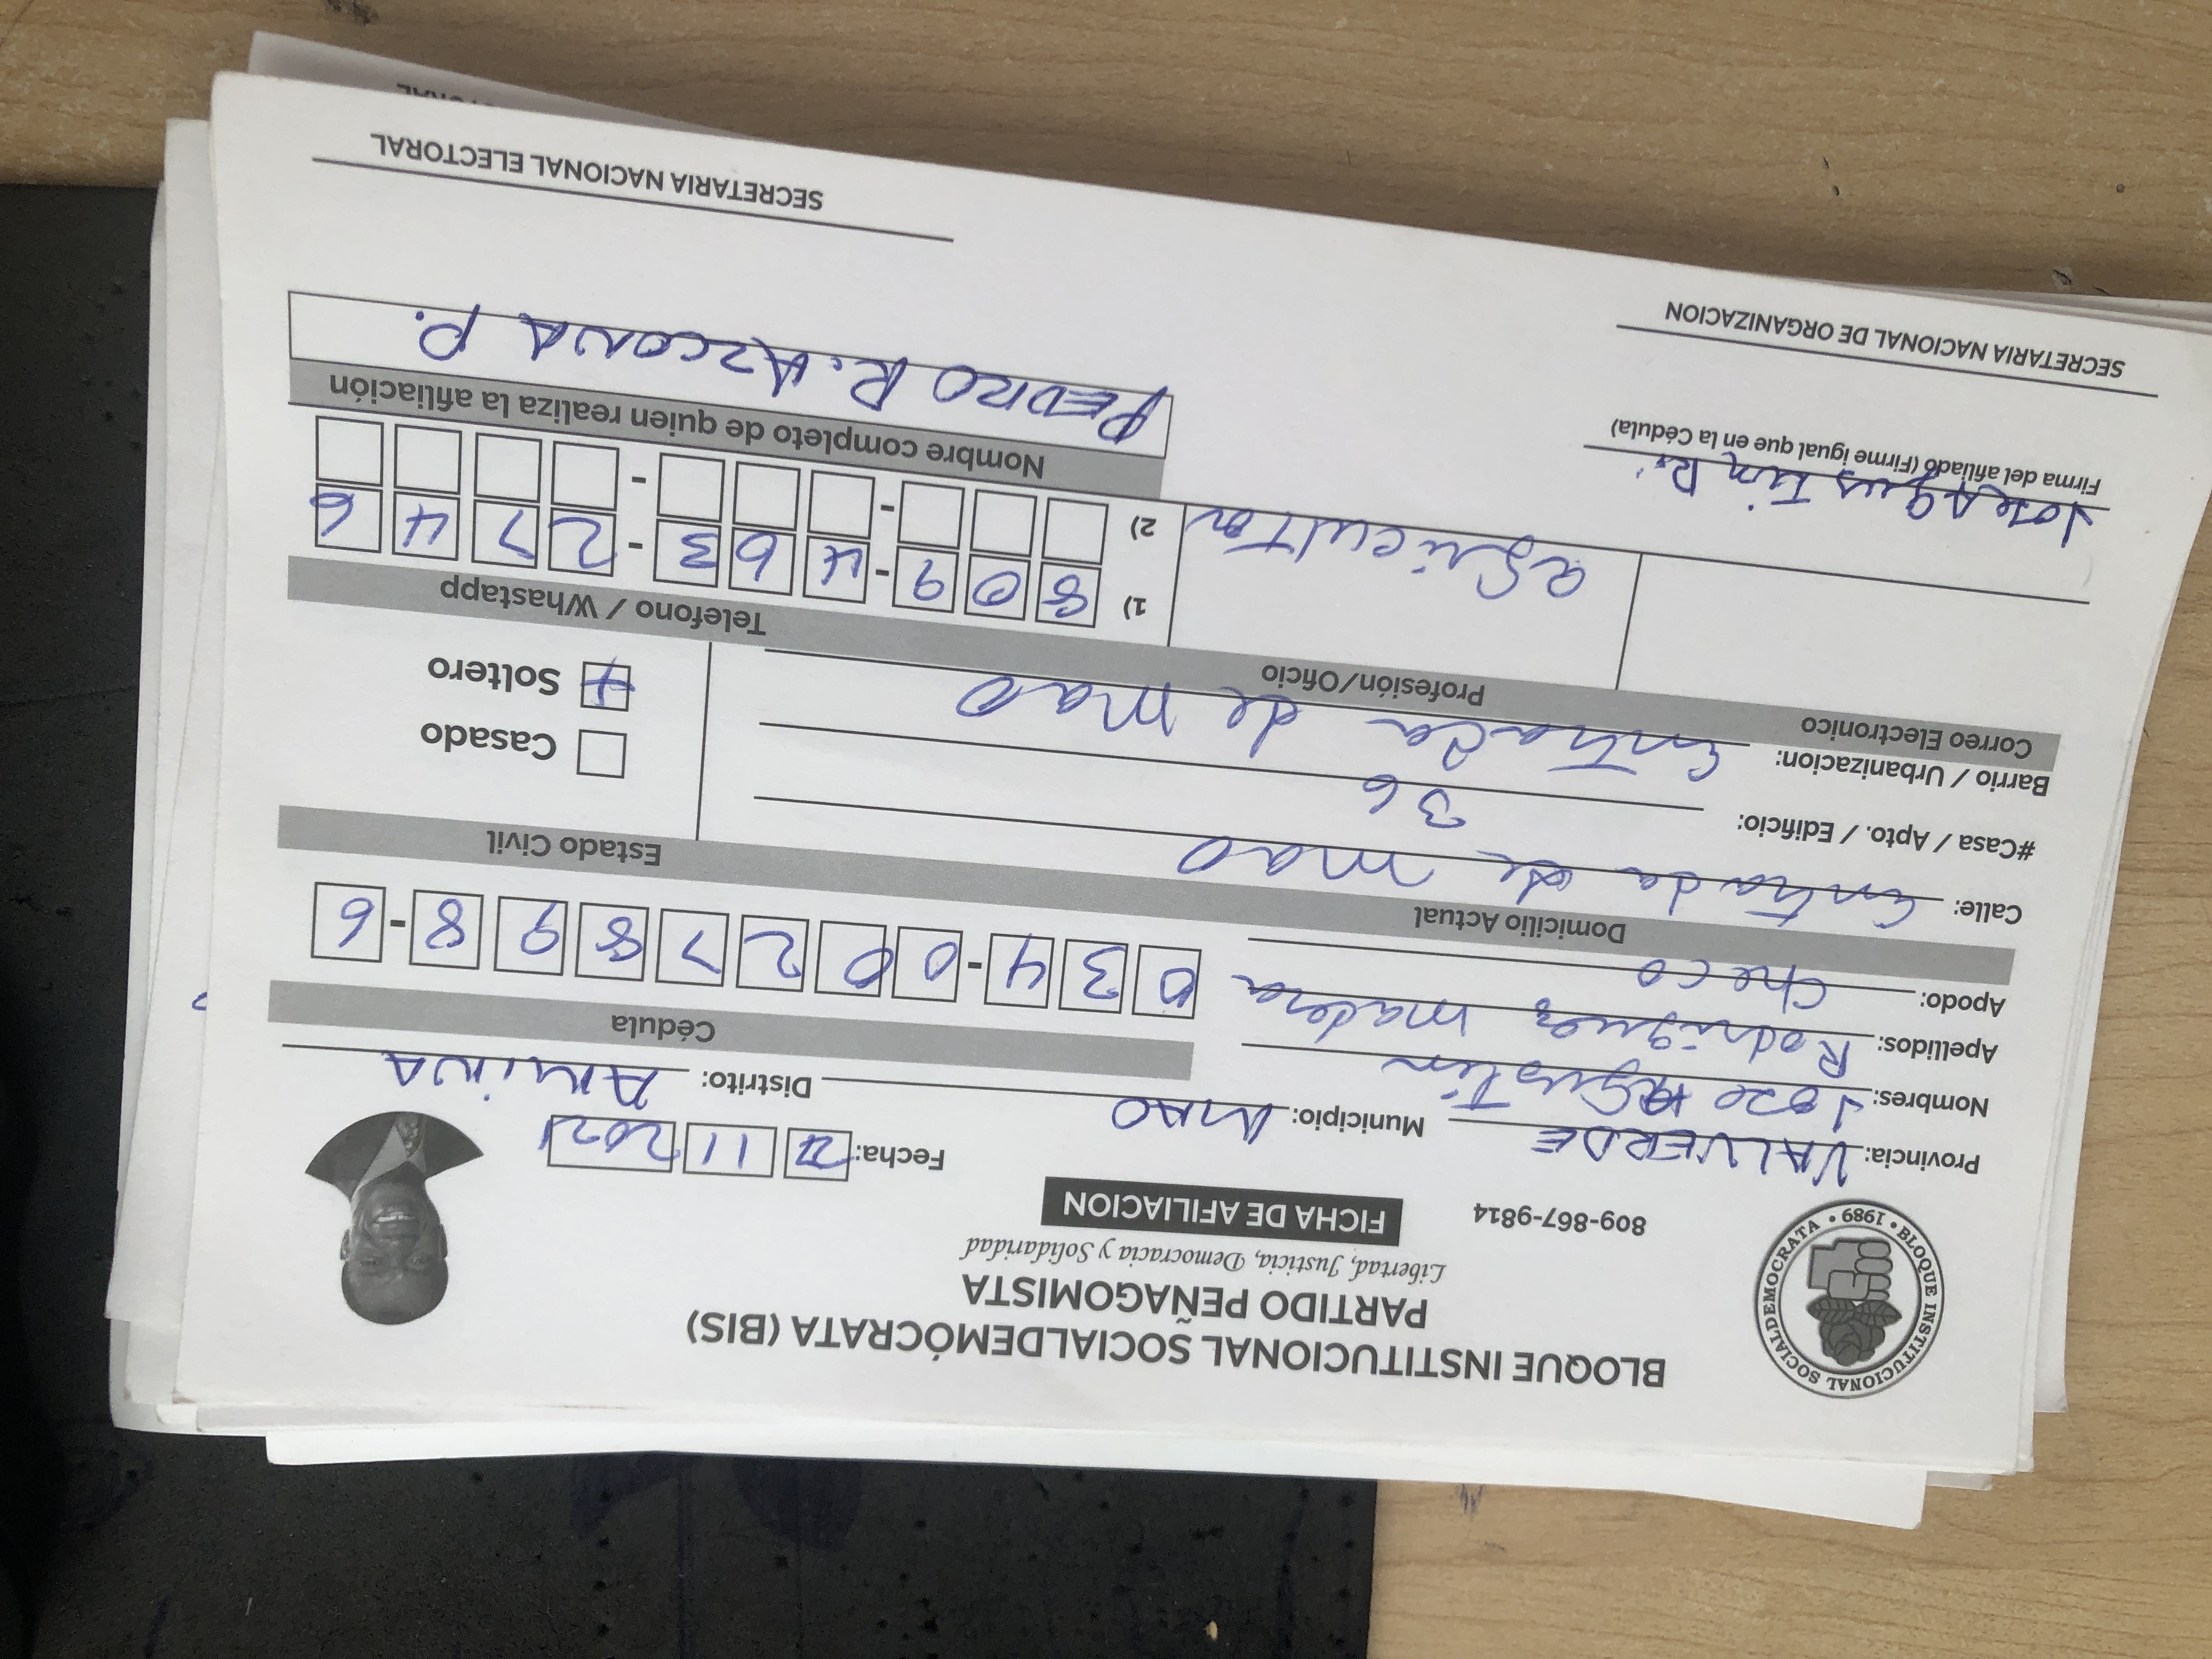 BLOQUE INSTITUCIONAL SOCIALDEMÓCRATA (BIS)
PARTIDO PEÑAGOMISTA
Libertad, Justicia, Democracia y Solidaridad
BLOQUE INSTITUCIONAL SOCIALDEMOCRATA • 1989 •
809-867-9814
FICHA DE AFILIACION
Fecha: 11 2021
Provincia: VALVERDE Municipio: MAO Distrito: AMINA
Nombres: Jose Agustin
Apellidos: Rodriguez madera
Apodo: Checo
Cédula
034-0027898-6
Domicilio Actual
Estado Civil
Calle: Entrada de mao
#Casa / Apto. / Edificio: 36
Barrio / Urbanizacion: Entrada de mao
Casado
Soltero
Correo Electronico
Profesión/Oficio
Telefono / Whastapp
agricultor
1) 809-463-2746
2)
Nombre completo de quien realiza la afiliación
PEDRO R. AZCONA P.
Jose Agustin R.
Firma del afiliado (Firme igual que en la Cédula)
SECRETARIA NACIONAL DE ORGANIZACION
SECRETARIA NACIONAL ELECTORAL